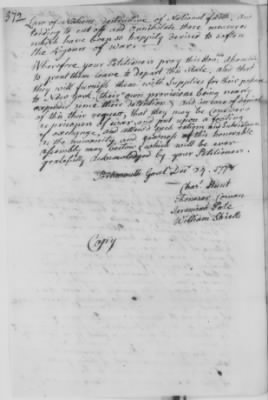 372
Law of Nations, destructive of National faith, and
tending to cut off and annihilate those
which have been so happily devised to soften
the Rigours of War.
Wherefore your Petitioners pray this Hon.
to grant them leave to depart this State, also that
they will furnish them with Supplies for their passage
to New York, their own provisions being nearly
expended since their detention & and in case of
of this their request, that they may be considered
as prisoners of war, and put upon a footing
of exchange, and afford such relief and
as the humanity and of this honorable
Assembly may & which will be ever
gratefully acknowledged by your Petitioners.
Portsmouth Goal Decr 24. 177
Chas. Hunt
Thomas
Jeremiah
William
Copy